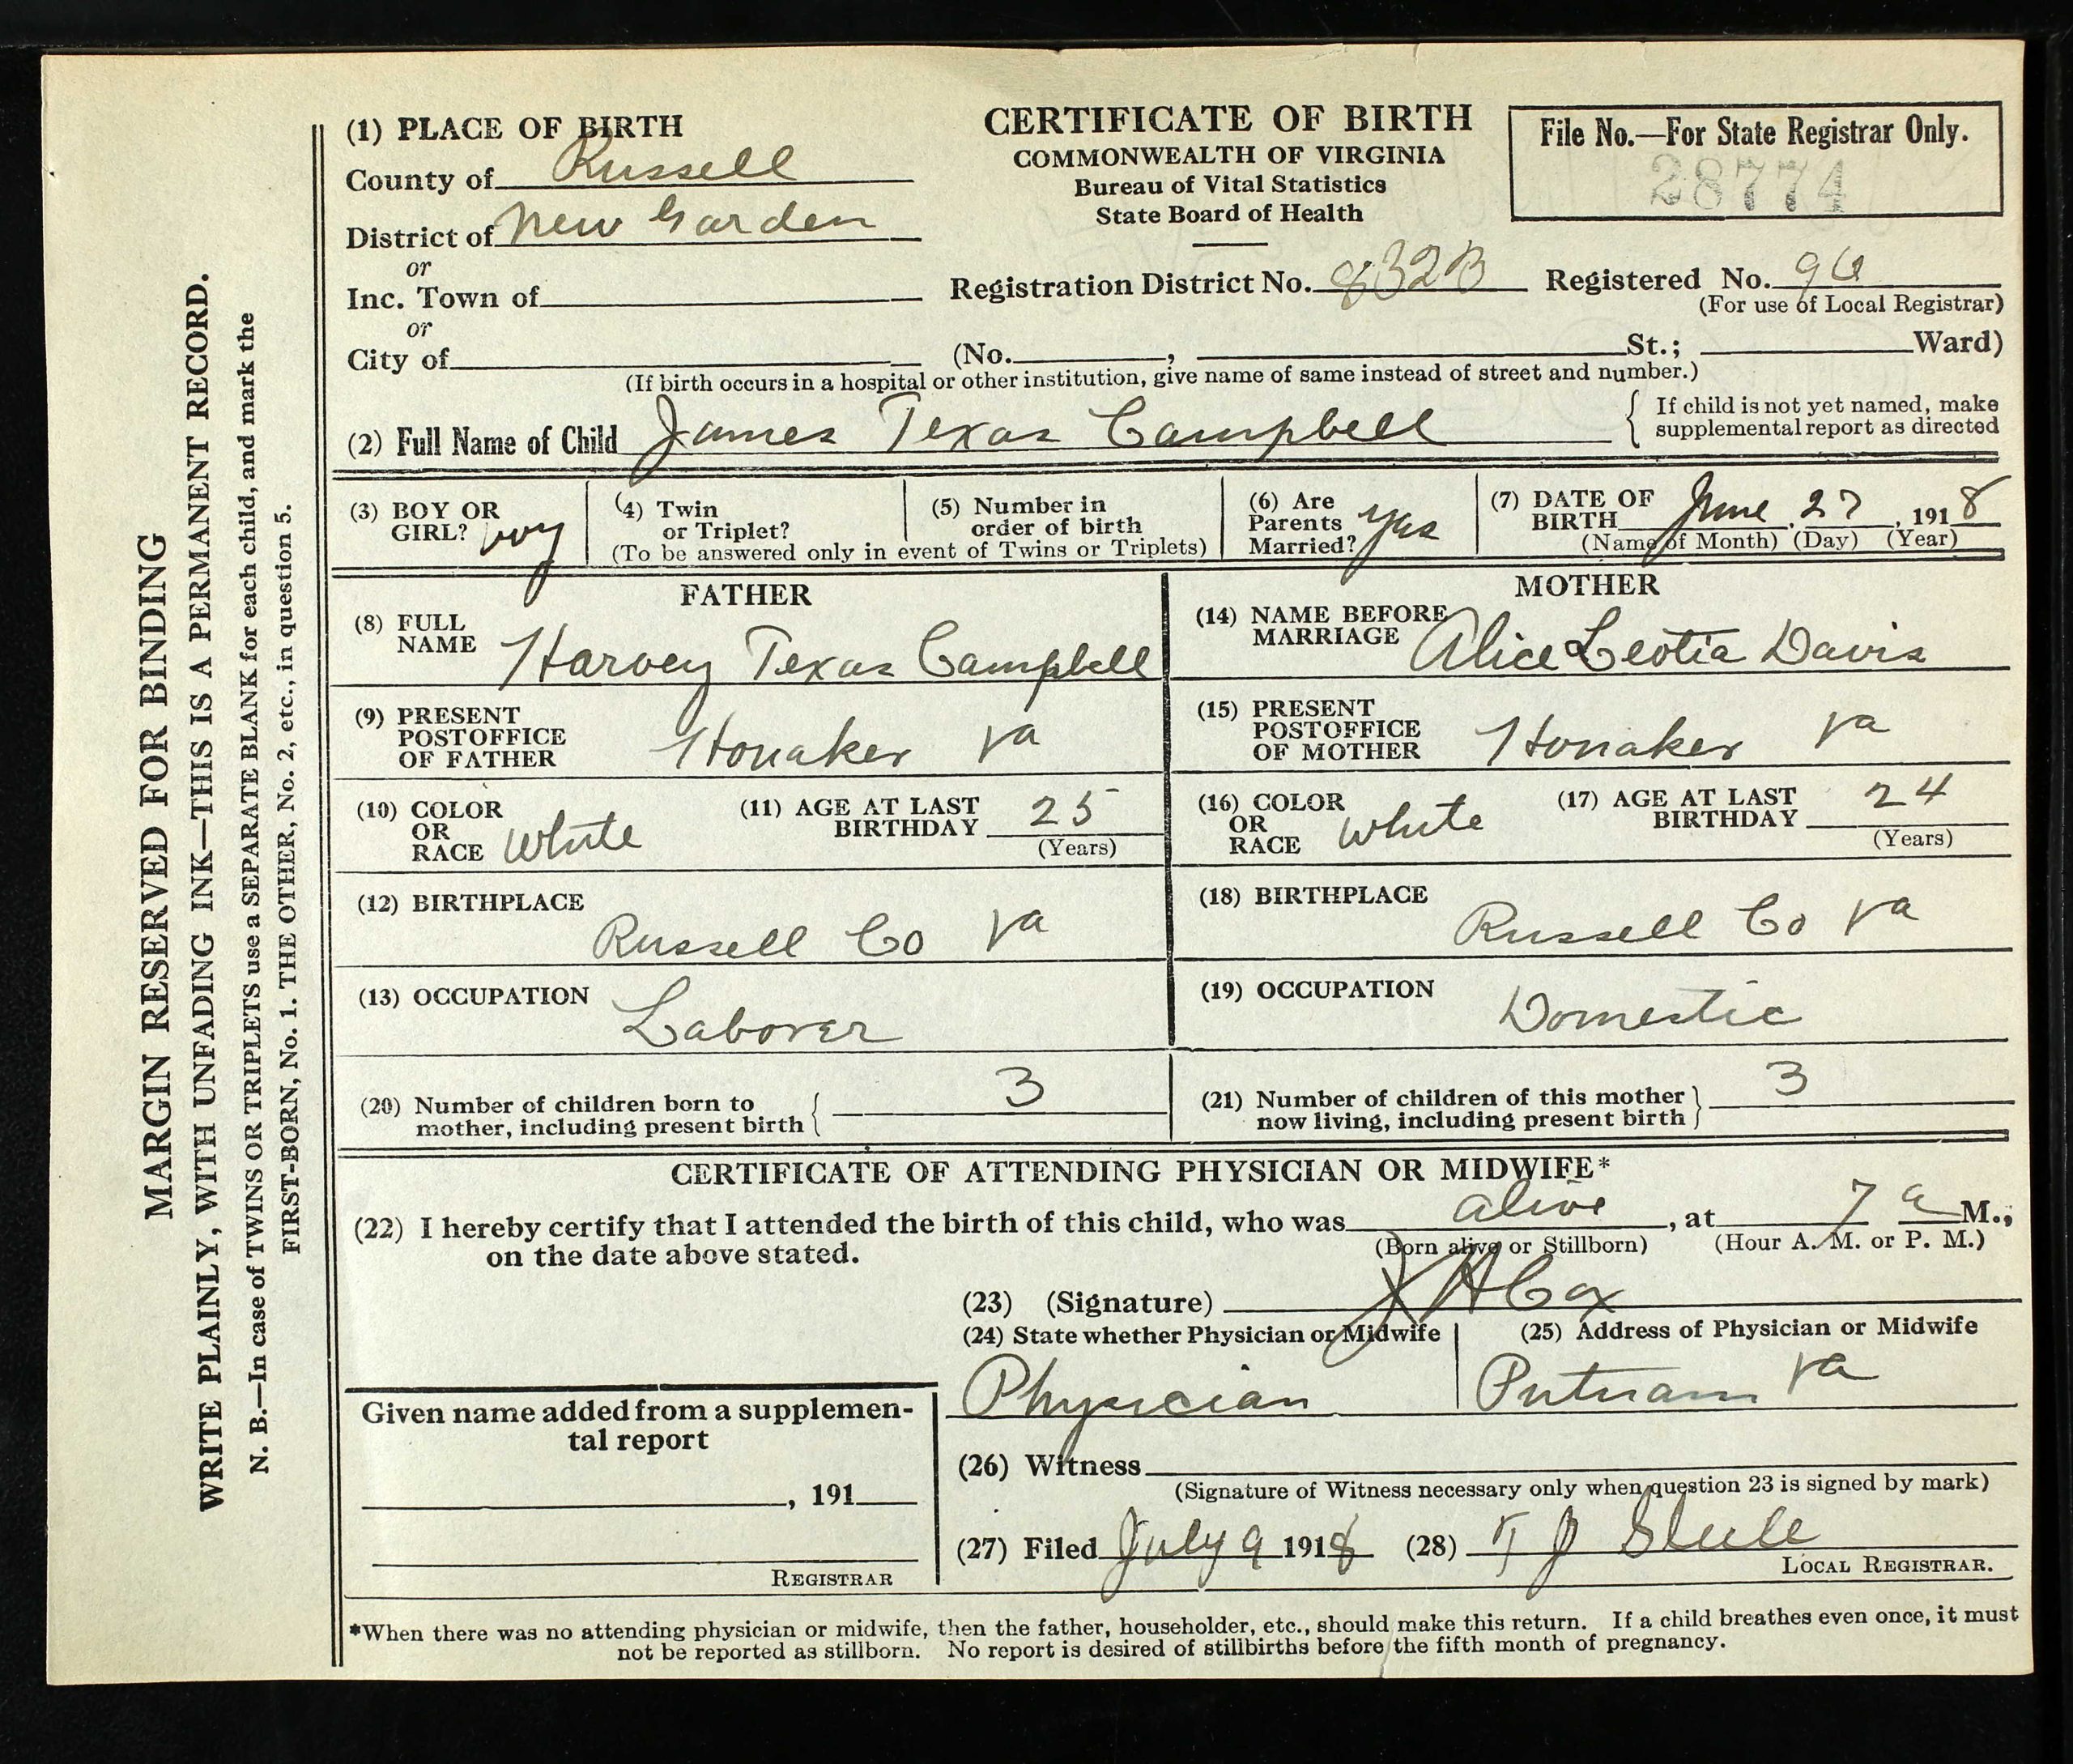 MARGIN RESERVED FOR BINDING
WRITE PLAINLY, WITH UNFADING INK—THIS IS A PERMANENT RECORD.
N. B.—In case of TWINS OR TRIPLETS use a SEPARATE BLANK for each child, and mark the
FIRST-BORN, No. 1. THE OTHER, No. 2, etc., in question 5.
(1) PLACE OF BIRTH
County of Russell
District of New Garden
or
Inc. Town of
or
City of
CERTIFICATE OF BIRTH
COMMONWEALTH OF VIRGINIA
Bureau of Vital Statistics
State Board of Health
File No.—For State Registrar Only.
28774
Registration District No. 832B Registered No. 96
(For use of Local Registrar)
(No. , St.; Ward)
(If birth occurs in a hospital or other institution, give name of same instead of street and number.)
(2) Full Name of Child James Texas Campbell
{ If child is not yet named, make
supplemental report as directed
(3) BOY OR
GIRL? boy
(4) Twin
or Triplet?
(5) Number in
order of birth
(To be answered only in event of Twins or Triplets)
(6) Are
Parents
Married? yas
(7) DATE OF
BIRTH June 27, 1918
(Name of Month) (Day) (Year)
FATHER
(8) FULL
NAME Harvey Texas Campbell
(9) PRESENT
POSTOFFICE
OF FATHER Honaker Va
(10) COLOR
OR
RACE White
(11) AGE AT LAST
BIRTHDAY 25
(Years)
(12) BIRTHPLACE
Russell Co Va
(13) OCCUPATION
Laborer
(20) Number of children born to
mother, including present birth { 3
MOTHER
(14) NAME BEFORE
MARRIAGE Alice Leotia Davis
(15) PRESENT
POSTOFFICE
OF MOTHER Honaker Va
(16) COLOR
OR
RACE White
(17) AGE AT LAST
BIRTHDAY 24
(Years)
(18) BIRTHPLACE
Russell Co Va
(19) OCCUPATION
Domestic
(21) Number of children of this mother
now living, including present birth } 3
CERTIFICATE OF ATTENDING PHYSICIAN OR MIDWIFE*
(22) I hereby certify that I attended the birth of this child, who was alive, at 7 a M.,
(Born alive or Stillborn) (Hour A. M. or P. M.)
on the date above stated.
(23) (Signature) Cox
(24) State whether Physician or Midwife
Physician
(25) Address of Physician or Midwife
Putnam Va
Given name added from a supplemen-
tal report
, 191
REGISTRAR
(26) Witness
(Signature of Witness necessary only when question 23 is signed by mark)
(27) Filed July 9 1918 (28) T J
LOCAL REGISTRAR.
*When there was no attending physician or midwife, then the father, householder, etc., should make this return. If a child breathes even once, it must
not be reported as stillborn. No report is desired of stillbirths before the fifth month of pregnancy.